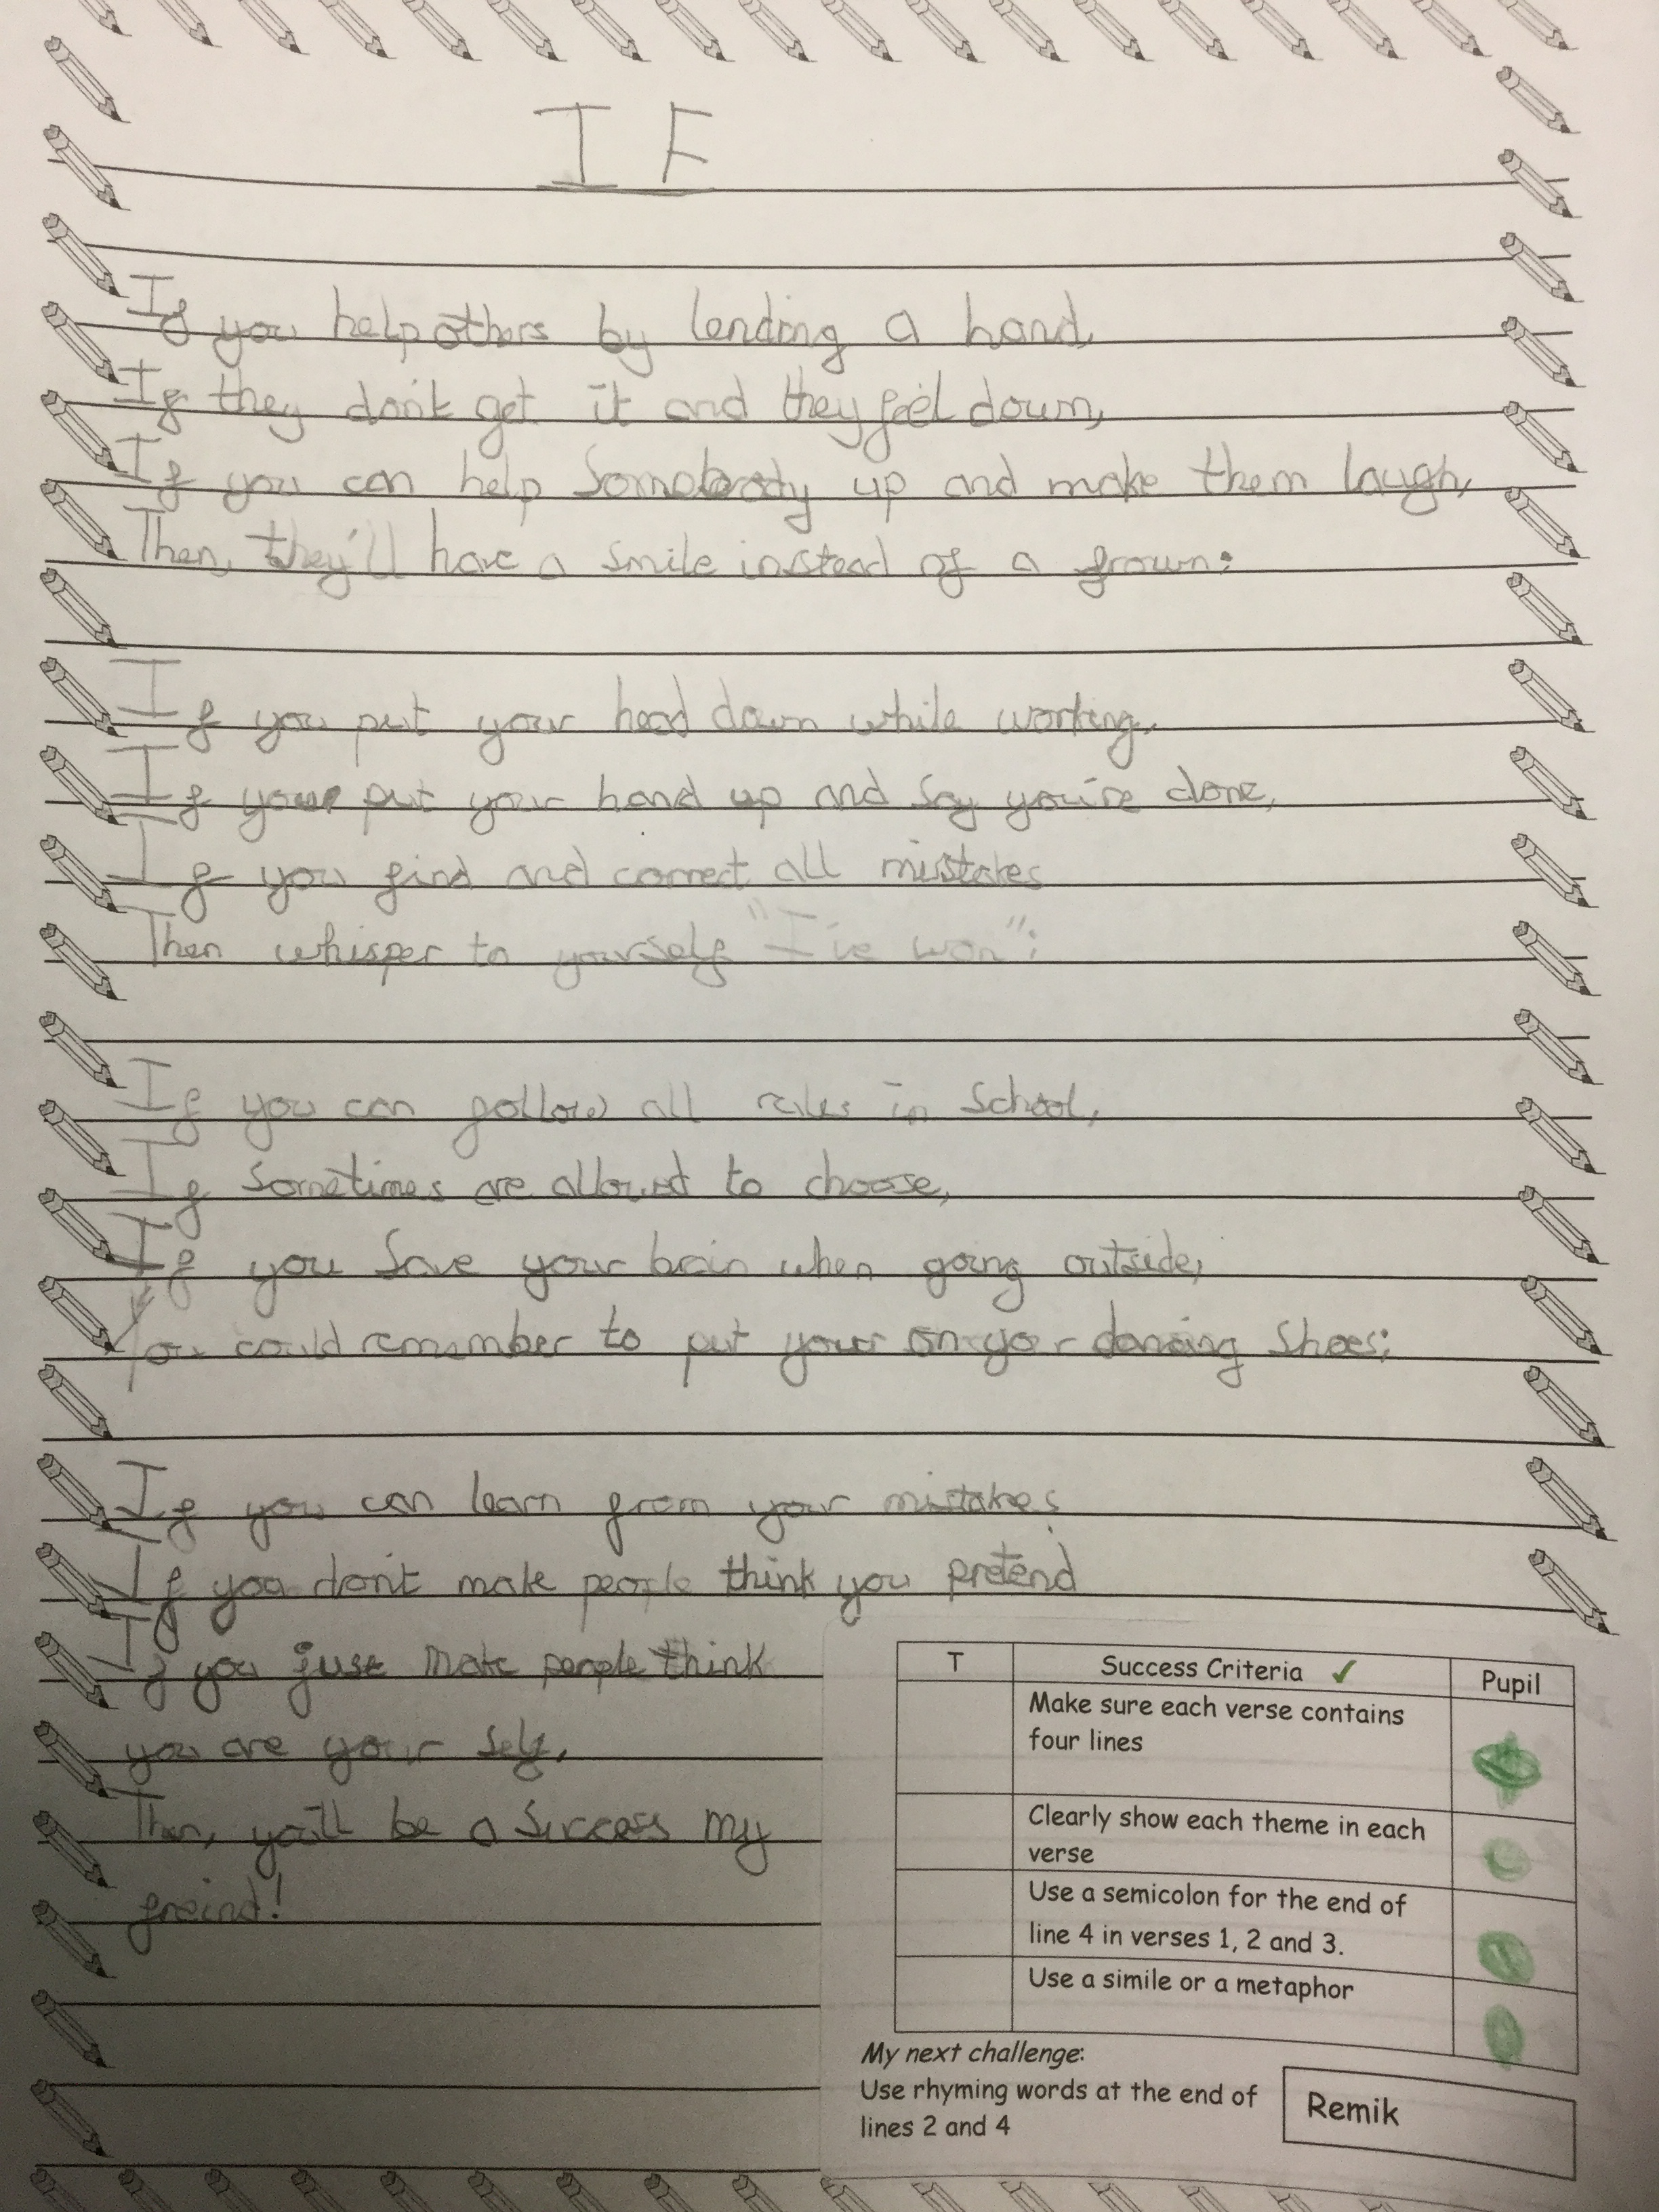 IF
If you help others by lending a hand,
If they don't get it and they feel down,
If you can help Somebody up and make them laugh,
Then, they'll have a smile instead of a frown;
If you put your head down while working,
If you put your hand up and say you're done,
If you find and correct all mistakes
Then whisper to yourself "I've won";
If you can follow all rules in School,
If Sometimes are allowed to choose,
If you Save your brain when going outside,
You could remember to put your on your dancing Shoes;
If you can learn from your mistakes
If you don't make people think you pretend
If you just make people think
you are your self,
Then, you'll be a Success My
freind!
T Success Criteria ✓ Pupil
Make sure each verse contains
four lines
Clearly show each theme in each
verse
Use a semicolon for the end of
line 4 in verses 1, 2 and 3.
Use a simile or a metaphor
My next challenge:
Use rhyming words at the end of
lines 2 and 4
Remik